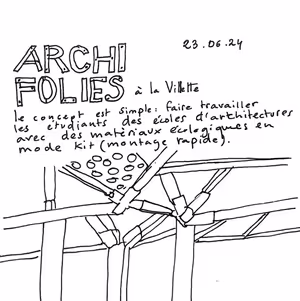 ARCHI
23.06.24
FOLIES
à la Villette
le concept est simple: faire travailler
les étudiants des écoles d'architectures
avec des matériaux écologiques en
mode kit (montage rapide).